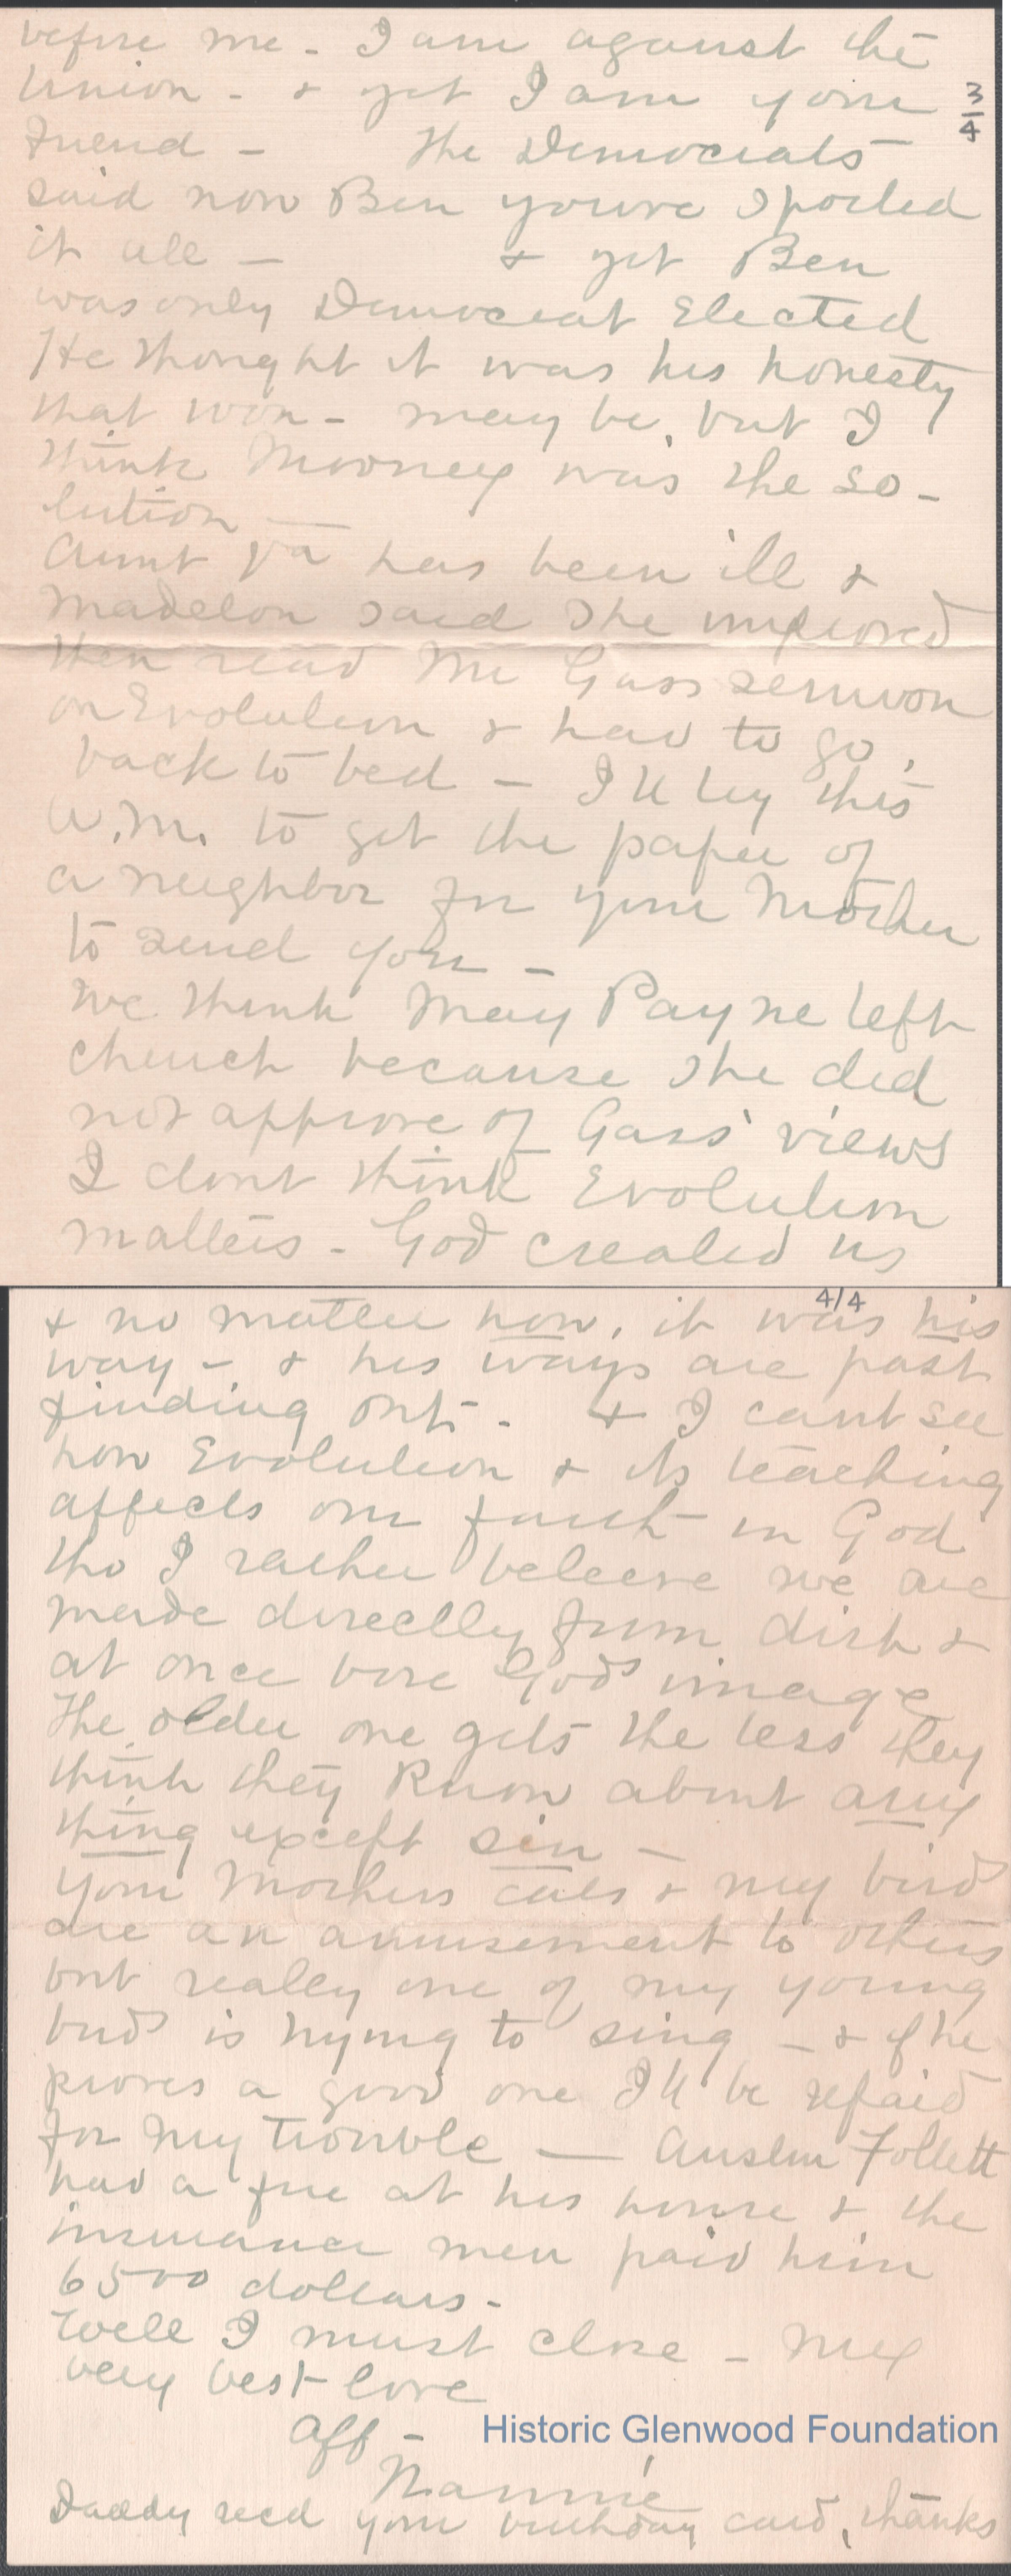 before me - I am against the
Union - & yet I am your
3/4
Friend - The Democrats
said now Ben youve spoiled
it all - & yet Ben
was only Democrat Elected
He thought it was his honesty
that won - may be, but I
think Mooney was the so-
lution -
Aunt Va has been ill &
Madelon said she improved
then read Mr Gass sermon
on Evolution & had to go
back to bed - I'll try this
a.m. to get the paper of
a neighbor for your Mother
to send you -
We think May Payne left
church because she did
not approve of Gass' views
I dont think Evolution
matters - God created us
4/4
& no matter how, it was his
way - & his ways are past
finding out - & I cant see
how Evolution & its teaching
affects our faith in God
tho I rather beleeve we are
made directly from dirt &
at once bore Gods image
The older one gets the less they
think they know about any
thing except sin -
Your Mothers cats & my bird
are an amusement to others
but really one of my young
birds is trying to sing - & if he
proves a good one I'll be repaid
for my trouble - Anslem Follett
had a fire at his house & the
insurance men paid him
6500 dollars -
Well I must close - My
very best love
Aff -
Nannie
Daddy recd your birthday card, thanks
Historic Glenwood Foundation